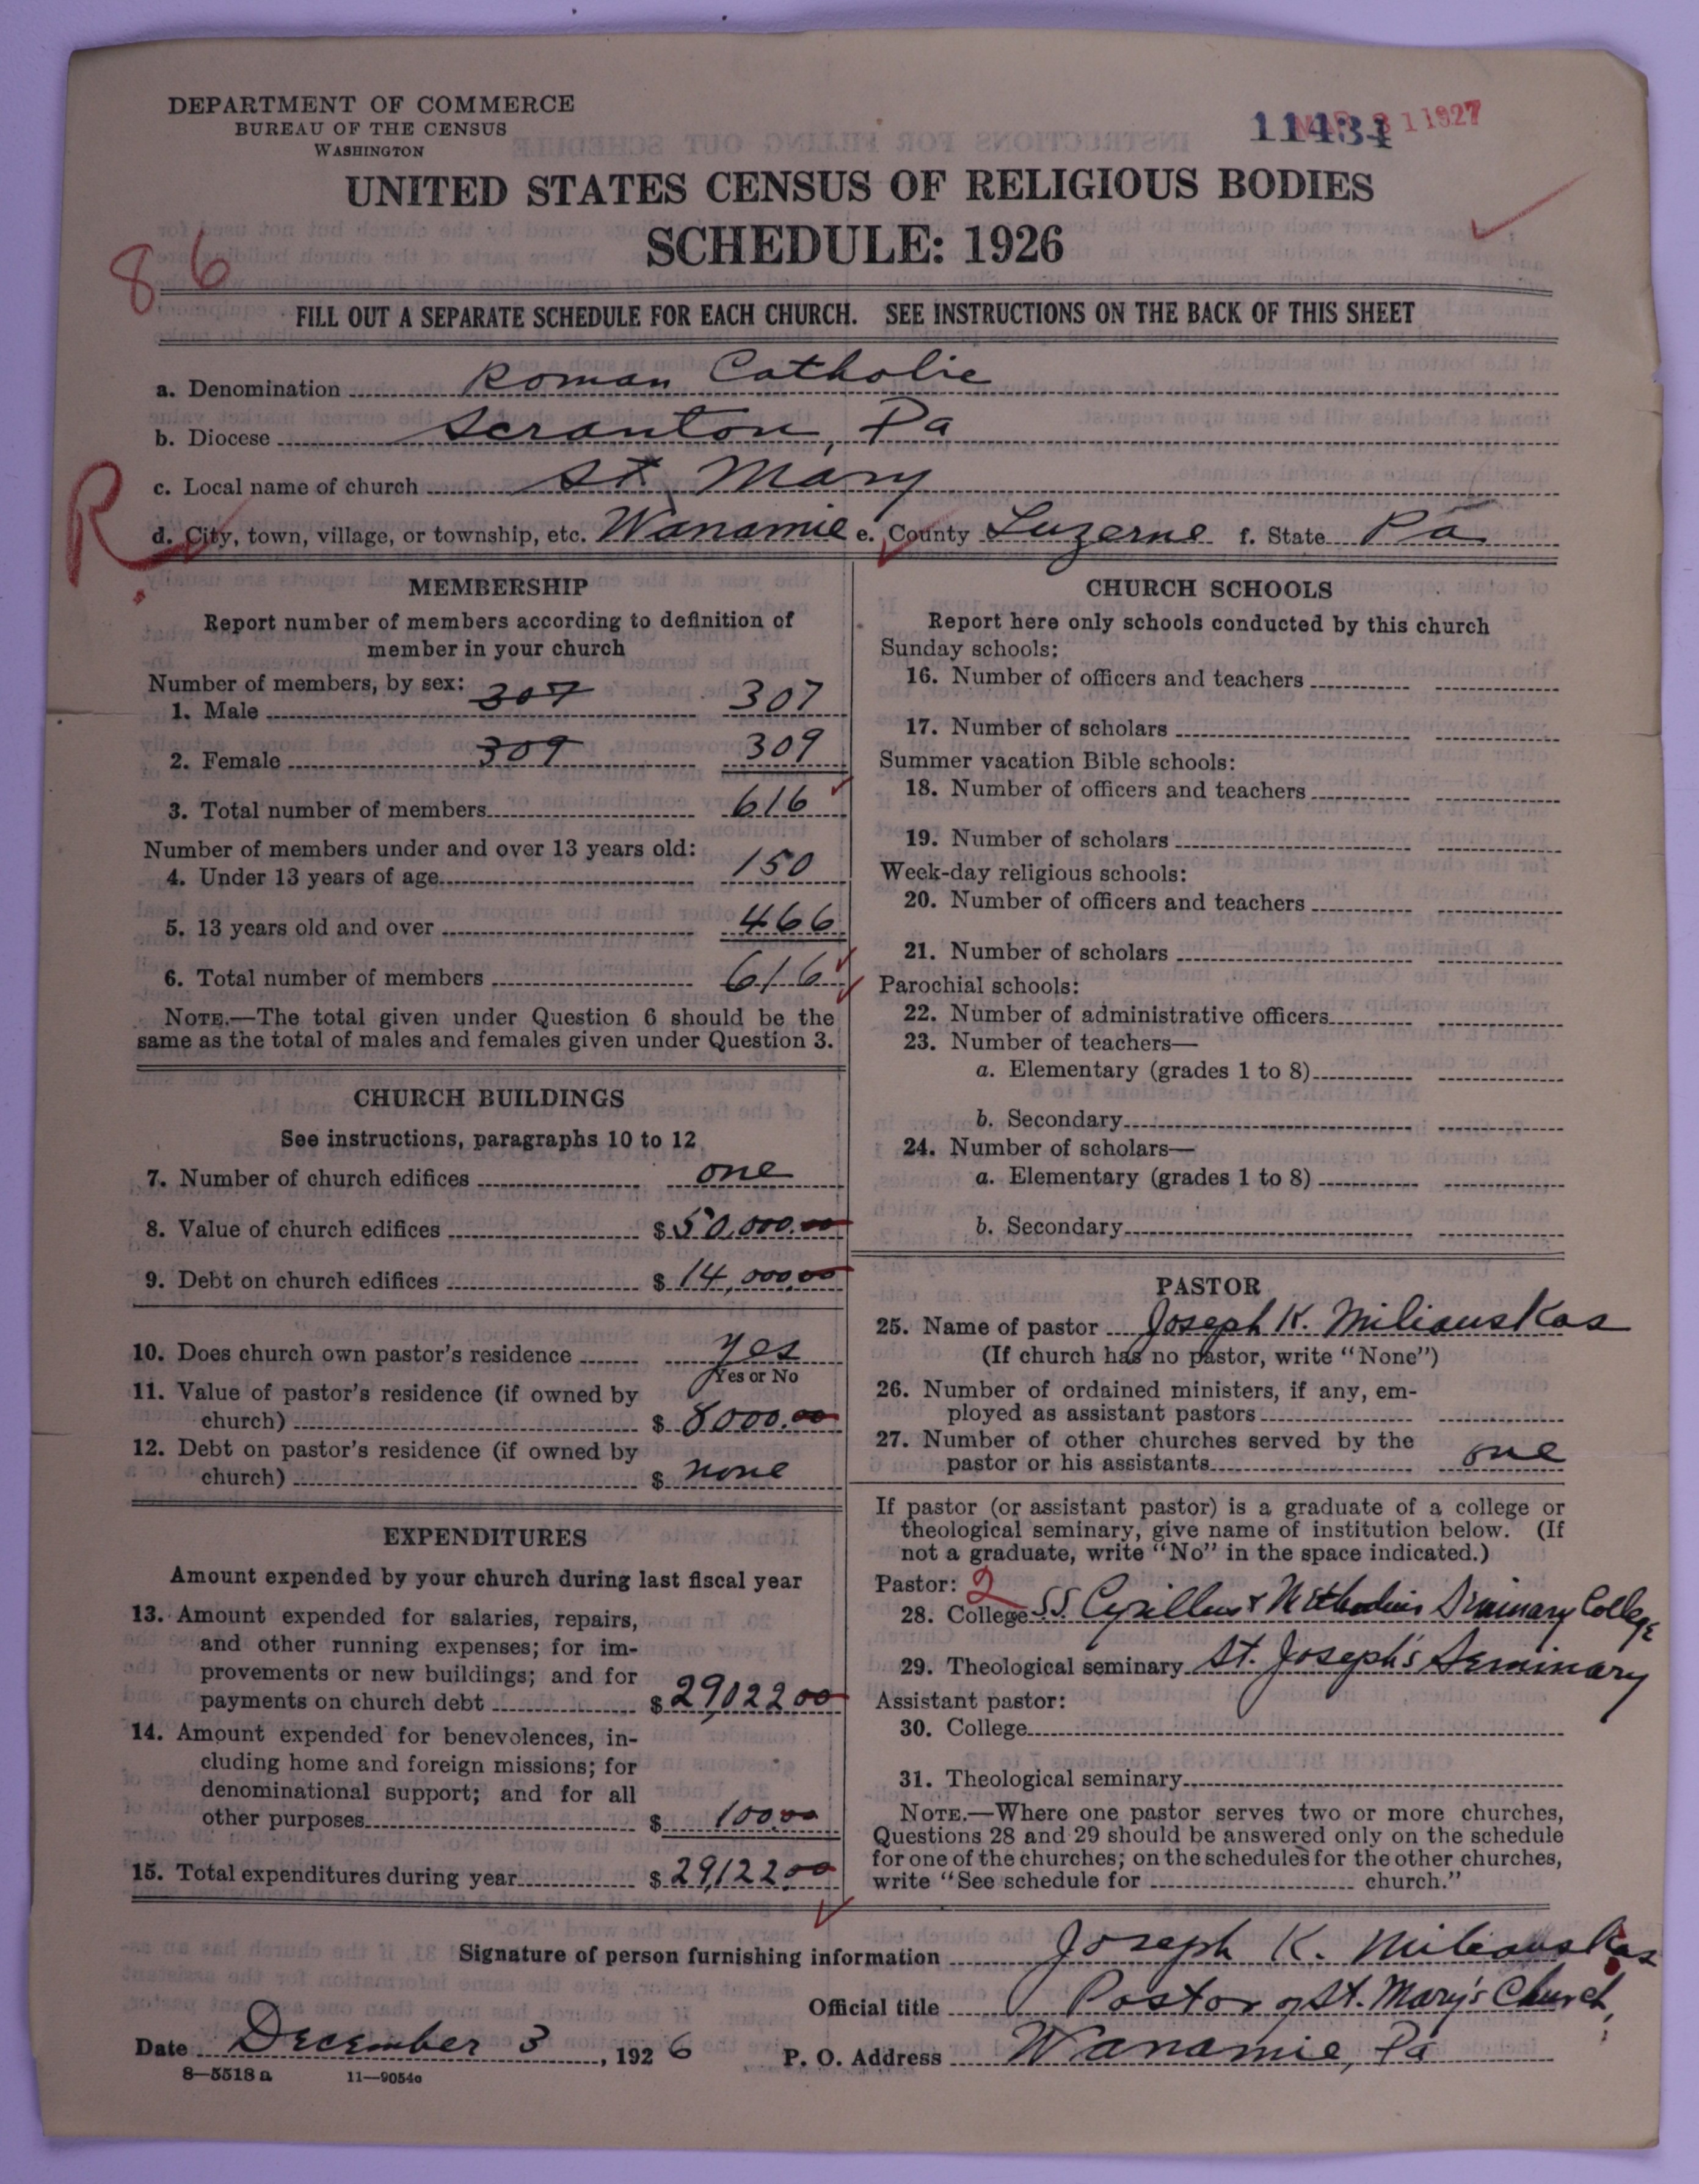 DEPARTMENT OF COMMERCE
BUREAU OF THE CENSUS
WASHINGTON
11434
1 1927
UNITED STATES CENSUS OF RELIGIOUS BODIES
SCHEDULE: 1926
86
FILL OUT A SEPARATE SCHEDULE FOR EACH CHURCH. SEE INSTRUCTIONS ON THE BACK OF THIS SHEET
a. Denomination Roman Catholic
b. Diocese Scranton, Pa
c. Local name of church St. Mary
R
d. City, town, village, or township, etc. Wanamie e. County Luzerne f. State Pa
MEMBERSHIP
Report number of members according to definition of
member in your church
Number of members, by sex:
1. Male 307 307
2. Female 309 309
3. Total number of members 616
Number of members under and over 13 years old:
4. Under 13 years of age 150
5. 13 years old and over 466
6. Total number of members 616
NOTE.—The total given under Question 6 should be the
same as the total of males and females given under Question 3.
CHURCH BUILDINGS
See instructions, paragraphs 10 to 12
7. Number of church edifices one
8. Value of church edifices $50,000.00
9. Debt on church edifices $14,000.00
10. Does church own pastor's residence yes
Yes or No
11. Value of pastor's residence (if owned by
church) $8000.00
12. Debt on pastor's residence (if owned by
church) $none
EXPENDITURES
Amount expended by your church during last fiscal year
13. Amount expended for salaries, repairs,
and other running expenses; for im-
provements or new buildings; and for
payments on church debt $29,022.00
14. Amount expended for benevolences, in-
cluding home and foreign missions; for
denominational support; and for all
other purposes $100.00
15. Total expenditures during year $29,122.00
CHURCH SCHOOLS
Report here only schools conducted by this church
Sunday schools:
16. Number of officers and teachers
17. Number of scholars
Summer vacation Bible schools:
18. Number of officers and teachers
19. Number of scholars
Week-day religious schools:
20. Number of officers and teachers
21. Number of scholars
Parochial schools:
22. Number of administrative officers
23. Number of teachers—
a. Elementary (grades 1 to 8)
b. Secondary
24. Number of scholars—
a. Elementary (grades 1 to 8)
b. Secondary
PASTOR
25. Name of pastor Joseph K. Miliauskas
(If church has no pastor, write "None")
26. Number of ordained ministers, if any, em-
ployed as assistant pastors
27. Number of other churches served by the
pastor or his assistants one
If pastor (or assistant pastor) is a graduate of a college or
theological seminary, give name of institution below. (If
not a graduate, write "No" in the space indicated.)
Pastor: 2
28. College SS. Cyrillus & Methodius Seminary College
29. Theological seminary St. Joseph's Seminary
Assistant pastor:
30. College
31. Theological seminary
NOTE.—Where one pastor serves two or more churches,
Questions 28 and 29 should be answered only on the schedule
for one of the churches; on the schedules for the other churches,
write "See schedule for church."
Signature of person furnishing information Joseph K. Miliauskas
Official title Pastor of St. Mary's Church,
Date December 3, 1926 P. O. Address Wanamie, Pa
8—5518 a 11—9054c